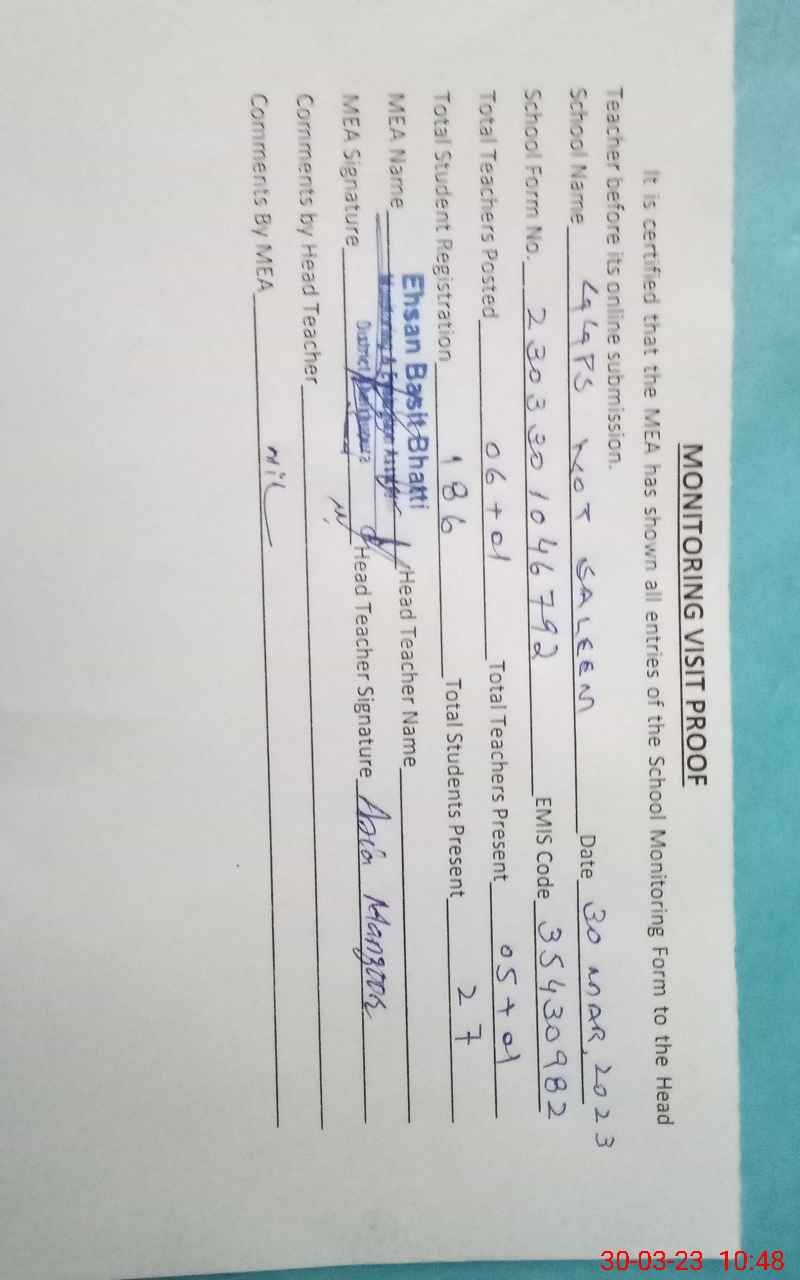 MONITORING VISIT PROOF
It is certified that the MEA has shown all entries of the School Monitoring Form to the Head
Teacher before its online submission.
School Name GGPS KOT SALEEM Date 30 MAR, 2023
School Form No. 2303301046792 EMIS Code 35430982
Total Teachers Posted 06+01 Total Teachers Present 05+01
Total Student Registration 186 Total Students Present 27
Ehsan Basit Bhatti
MEA Name Head Teacher Name
Monitoring & Evaluation Assistant
District
MEA Signature Head Teacher Signature Asia Manzoor
Comments by Head Teacher
Comments By MEA Nil
30-03-23 10:48